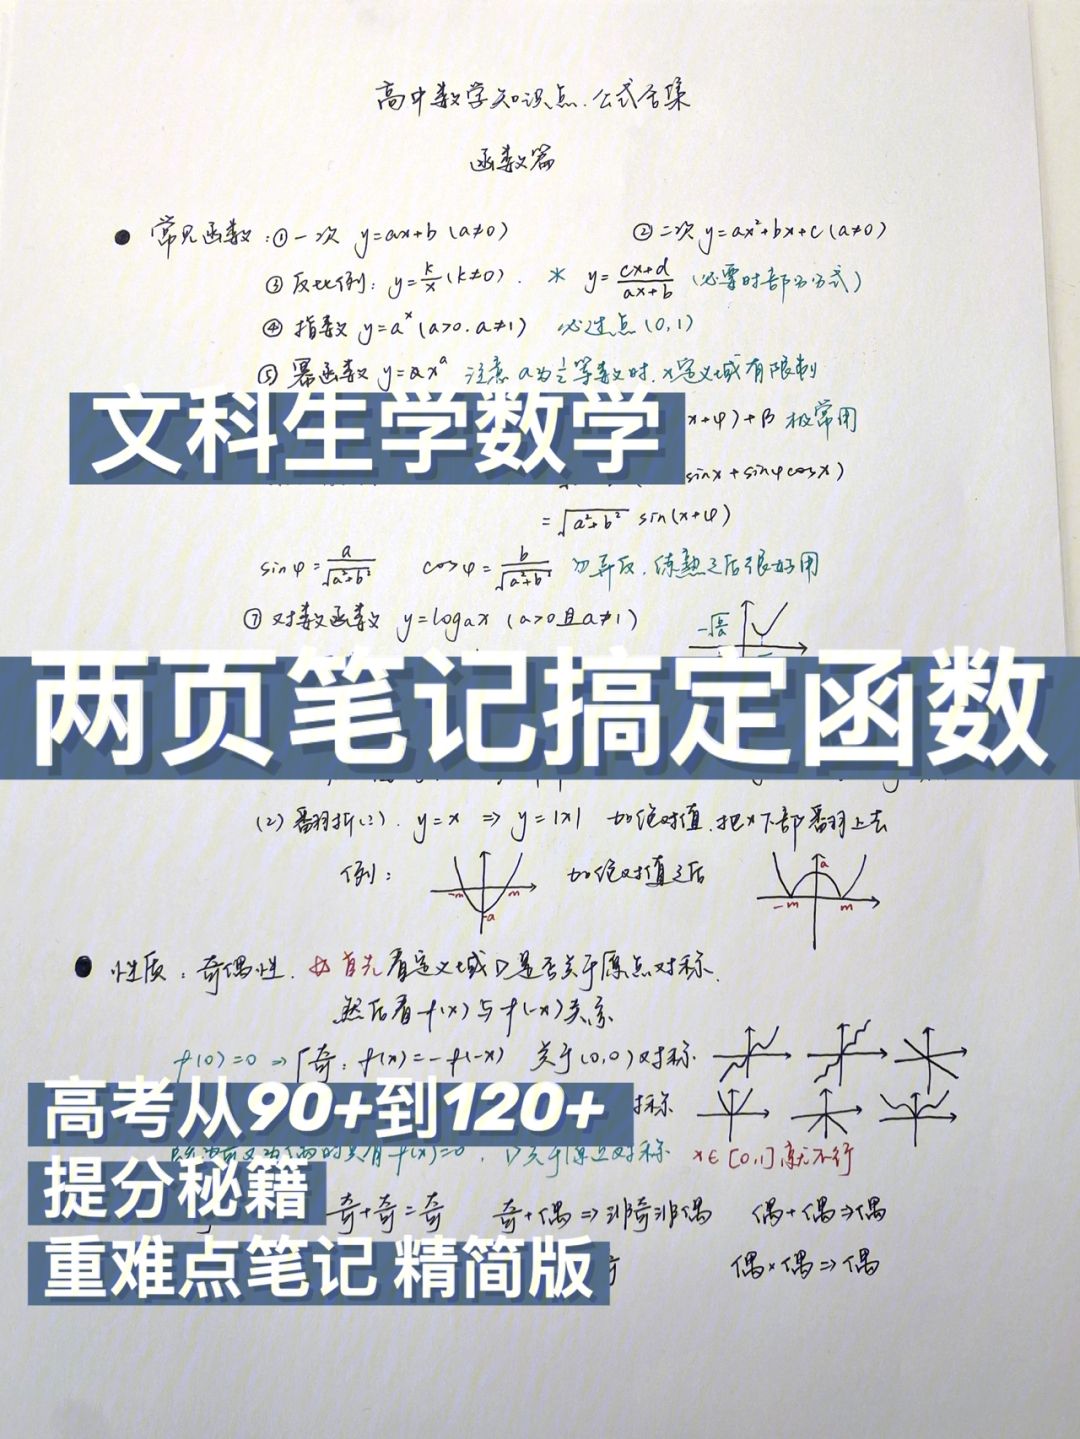 高中数学知识点.公式合集
函数篇
● 常见函数:①一次 y=ax+b (a≠0) ②二次 y=ax²+bx+c (a≠0)
③反比例: y=k/x (k≠0). * y=cx+d/ax+b (必要时部分分式)
④ 指数 y=aˣ (a>0.a≠1) 必过点(0,1)
⑤ 幂函数 y=axᵃ 注意a为½等数时.x定义域有限制
文科生学数学
x+φ)+B 极常用
sinx+sinφcosx)
=√a²+b² sin(x+φ)
sinφ=a/√a²+b² cosφ=b/√a²+b² 勿弄反.练熟之后很好用
⑦ 对数函数 y=logax (a>0且a≠1)
两页笔记搞定函数
(2) 翻折(2). y=x ⇒ y=|x| 加绝对值.把x下部翻上去
例: -m m -a 加绝对值之后 a -m m
● 性质: 奇偶性. 首先看定义域D是否关于原点对称.
然后看f(x)与f(-x)关系
f(0)=0 ⇒ 奇: f(x)=-f(-x) 关于(0,0)对称
对称
高考从90+到120+
f(x)=0. D关于原点对称 x∈[0,1]就不行
提分秘籍
奇+奇=奇 奇+偶⇒非奇非偶 偶+偶⇒偶
重难点笔记 精简版
偶×偶⇒偶